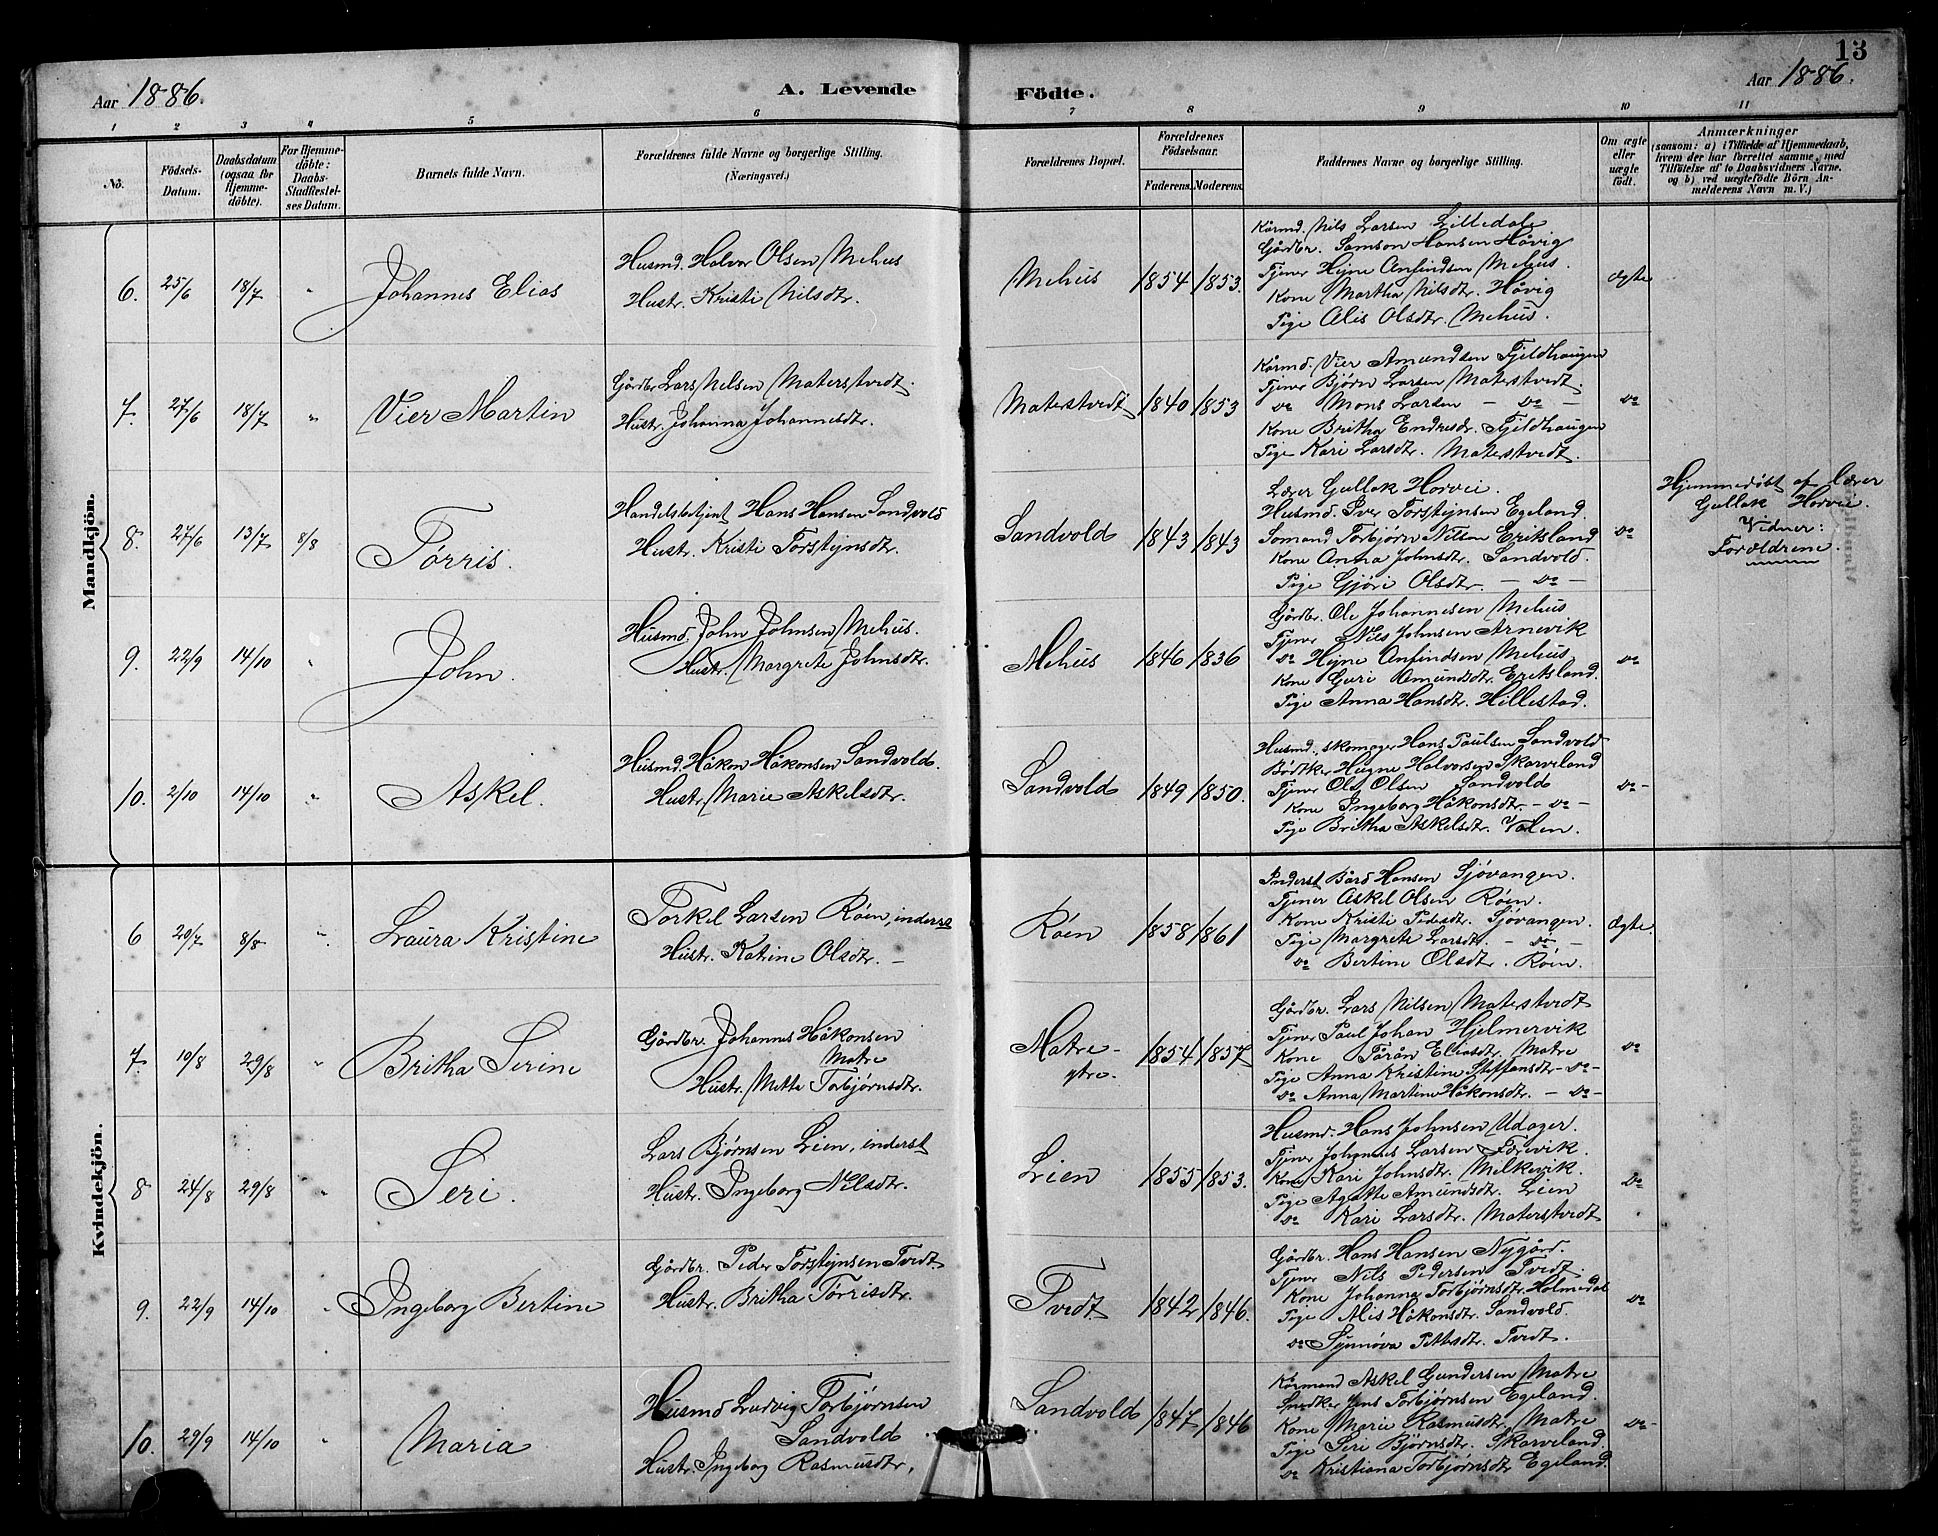 13
Aar 1886.
A. Levende Födte.
Aar 1886.
1 2 3 4 5 6 7 8 9 10 11
No.
Födsels-Datum.
Daabsdatum (ogsaa for Hjemme-döbte).
For Hjemme-döbte: Daabs-Stadfæstel-ses Datum.
Barnets fulde Navn.
Forældrenes fulde Navne og borgerlige Stilling.
(Næringsvei.)
Forældrenes Bopæl.
Forældrenes Födselsaar.
Faderens. Moderens.
Faddernes Navne og borgerlige Stilling.
Om ægte eller uægte födt.
Anmærkninger
(saasom: a) i Tilfælde af Hjemmedaab,
hvem der har forrettet samme, med
Tilföielse af to Daabsvidners Navne,
og b) ved uægtefödte Börn An-
melderens Navn m. V.)
Mandkjön.
6. 25/6 18/7 " Johannes Elias
Husmd. Halvor Olsen Mehus
Hustr. Kristi Nilsdtr.
Mehus 1854 1853.
Kårmd. Nils Larsen Lilledale
Gårdbr. Samson Hansen Håvig
Tjener Hejne Anfindsen Mehus.
Kone Martha Nilsdtr. Håvig
Pige Alis Olsdtr. Mehus.
Ægte
7. 27/6 18/7 " Vier Martin
Gårdbr Lars Nilsen Materstvedt.
Hustr. Johanna Johannesdtr.
Materstvedt 1840 1853
Kårmd. Vier Amundsen Fjeldhaugen
Tjener Bjørn Larsen Materstvedt.
do Mons Larsen – do –
Kone Britha Endresdr. Fjeldhaugen
Pige Kari Larsdtr. Materstvedt.
do
8. 27/6 13/7 8/8 Tørris.
Handelsbetjent Hans Hansen Sandvold
Hustr. Kristi Torstejnsdtr.
Sandvold 1843 1843
Lærer Gullak Horvei.
Husmd. Iver Torstejnsen Egeland.
Sømand Torbjørn Nilsen Eritsland
Kone Anna Johnsdtr. Sandvold.
Pige Gjøri Olsdtr – do –
do
Hjemmedøbt af lærer
Gullak Horvei.
Vidner:
Forældrene.
9. 22/9 14/10 " John.
Husmd. John Johnsen Mehus.
Hustr. Margrete Johnsdtr.
Mehus 1846 1836
Gårdbr. Ole Johannesen Mehus
Tjener Nils Johnsen Arnevik
do Hejne Anfindsen Mehus
Kone Guri Amundsdtr. Eritsland.
Pige Anna Hansdtr. Hillestad.
do
10. 2/10 14/10 " Askel.
Husmd. Håkon Håkonsen Sandvold.
Hustr. Marie Askelsdtr.
Sandvold 1849 1850.
Husmd., skomager Hans Paulsen Sandvold
Bødtker Hejne Halvorsen Skarveland
Tjener Ole Olsen Sandvold
Kone Ingeborg Håkonsdtr. – do –
Pige Britha Askelsdtr. Valen.
do
Kvindekjön.
6 20/7 8/8 " Laura Kristine
Torkel Larsen Røen, inderst
Hustr. Katine Olsdtr. –
Røen 1858 1861
Inderst Bård Hansen Sjøvangen.
Tjener Askel Olsen Røen.
Kone Kristi Pedersdtr. Sjøvangen.
Pige Margrete Larsdtr. – do –
do Bertine Olsdtr. Røen.
Ægte.
7 10/8 29/8 " Britha Serine
Gårdbr. Johannes Håkonsen
Matre
Hustr. Mette Torbjørnsdtr.
Matre –
ytre. 1854 1857
Gårdbr. Lars Nilsen Materstvedt
Tjener Paul Johan Hjelmervik
Kone Tårån Eliasdtr. Matre
Pige Anna Kristine Steffensdtr – do –
do Anna Martine Håkonsdtr. – do –
do
8 24/8 29/8 " Seri.
Lars Bjørnsen Lien, inderst
Hustr. Ingeborg Nilsdtr.
Lien 1855 1853.
Husmd. Hans Johnsen Udager.
Tjener Johannes Larsen Førevik.
Kone Kari Johnsdtr. Melkevik.
Pige Agatte Amundsdtr. Lien
do Kari Larsdtr. Materstvedt
do
9. 22/9 14/10 " Ingeborg Bertine
Gårdbr. Peder Torstejnsen Tvedt.
Hustr. Britha Tørrisdtr.
Tvedt 1842 1846.
Gårdbr. Hans Hansen Nygård.
Tjener Nils Pedersen Tvedt.
Kone Johanna Torbjørnsdtr. Holmedal
Pige Alis Håkonsdtr. Sandvold.
do Synnøva Pedersdtr. Tvedt.
do
10. 29/9 14/10 " Maria
Husmd Ludvig Torbjørnsen
Sandvold
Hustr. Ingeborg Rasmusdtr,
Sandvold 1847 1846
Kårmand Askel Gundersen Matre
Snedker Jens Torbjørnsen Egeland.
Kone Marie Rasmusdtr. Matre
Pige Seri Bjørnsdtr. Skarveland.
do Kristiana Torbjørnsdtr Egeland.
do